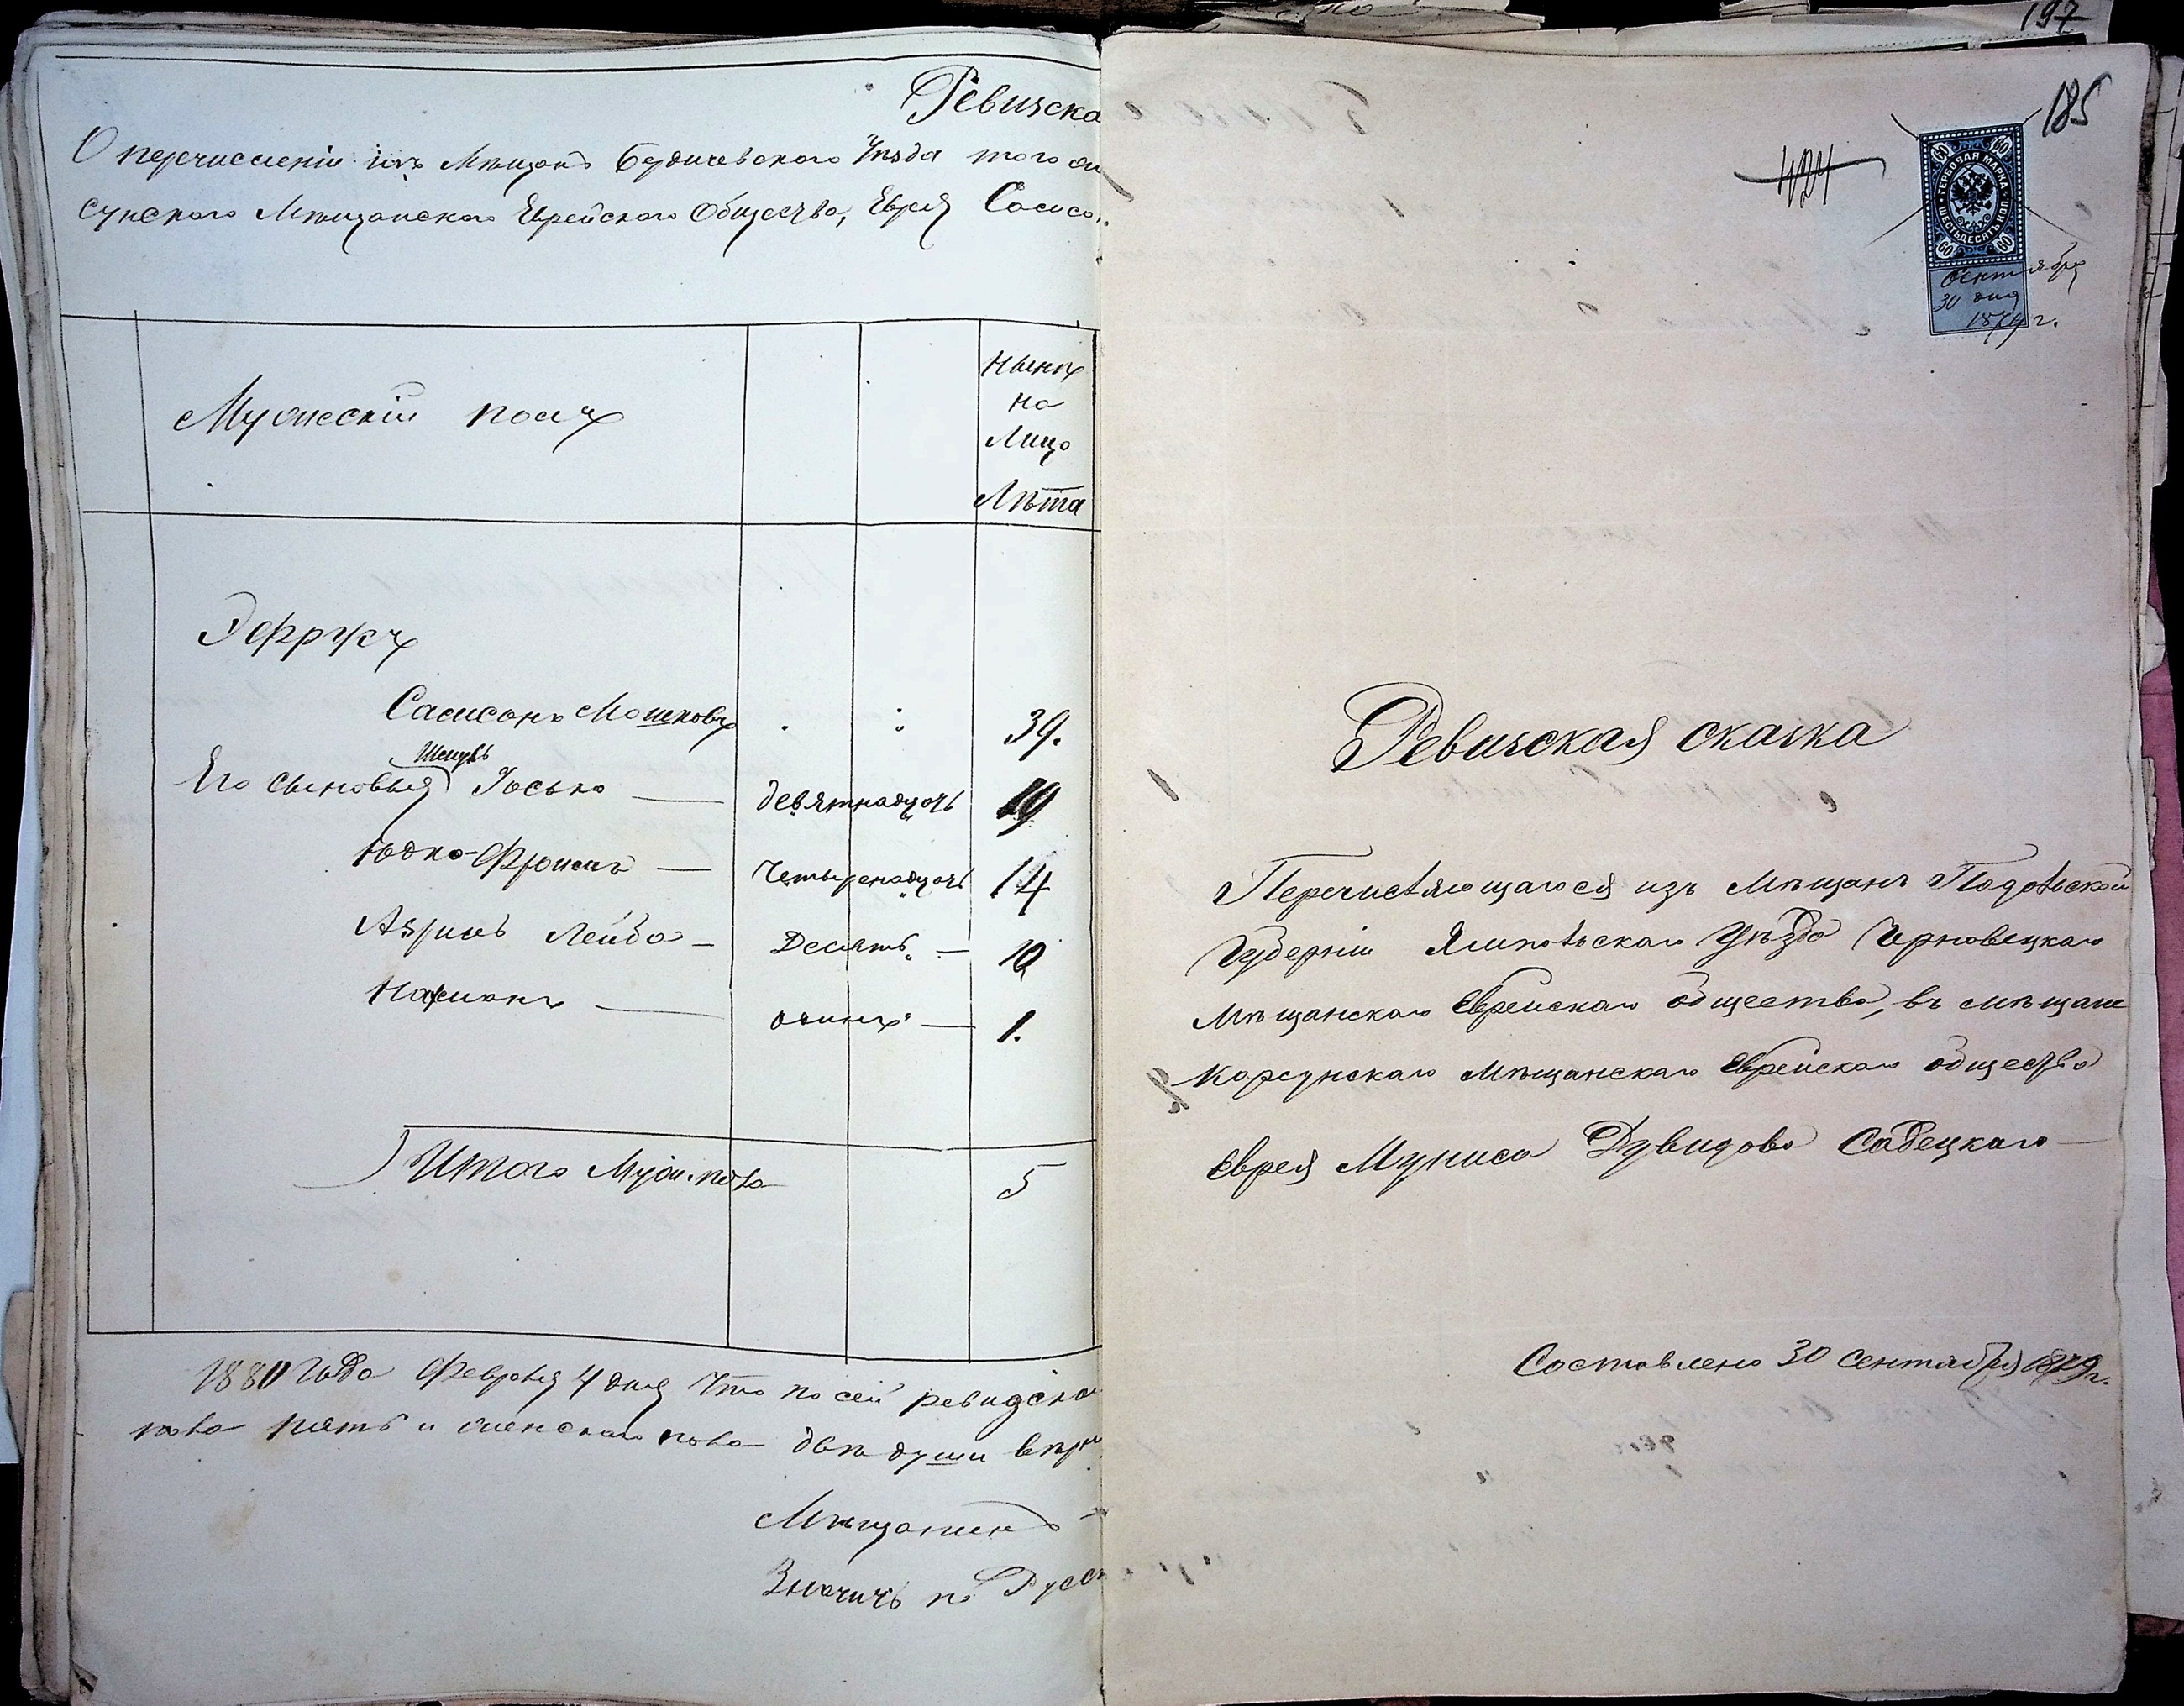 Ревизска
О перечисленіи изъ Мѣщанъ Бердичевскаго Уѣзда того
сунскаго Мѣщанскаго Еврейскаго Общества, Еврея Самсо
Мужескій полъ
Нынѣ
на
Лицо
Лѣта
Эфрусъ
Самсонъ Мошковъ 39.
Его сыновья Шмуль Іосько — девятнадцать 19
Юдко-Фроимъ — Четырнадцать 14
Азріиль Лейба — Десять — 10
Нахманъ — одинъ — 1.
Итого Муж. пола 5
1880 Года Февраля 4 дня Что по сей ревизской
пола пять и женскаго пола двѣ души
Мѣщанинъ
Значитъ по Русск
197
185
424
ГЕРБОВАЯ МАРКА
ШЕСТЬДЕСЯТЪ КОП.
60 60
60 60
Сентября
30 дня
1879 г.
Ревизская сказка
Перечисляющагося изъ Мѣщанъ Подольской
Губерніи Ямпольскаго Уѣзда Черновецкаго
Мѣщанскаго Еврейскаго общества, въ мѣщане
Корсунскаго Мѣщанскаго Еврейскаго общества
Еврея Муниса Дувидова Садецкаго
Составлено 30 Сентября 1879 г.